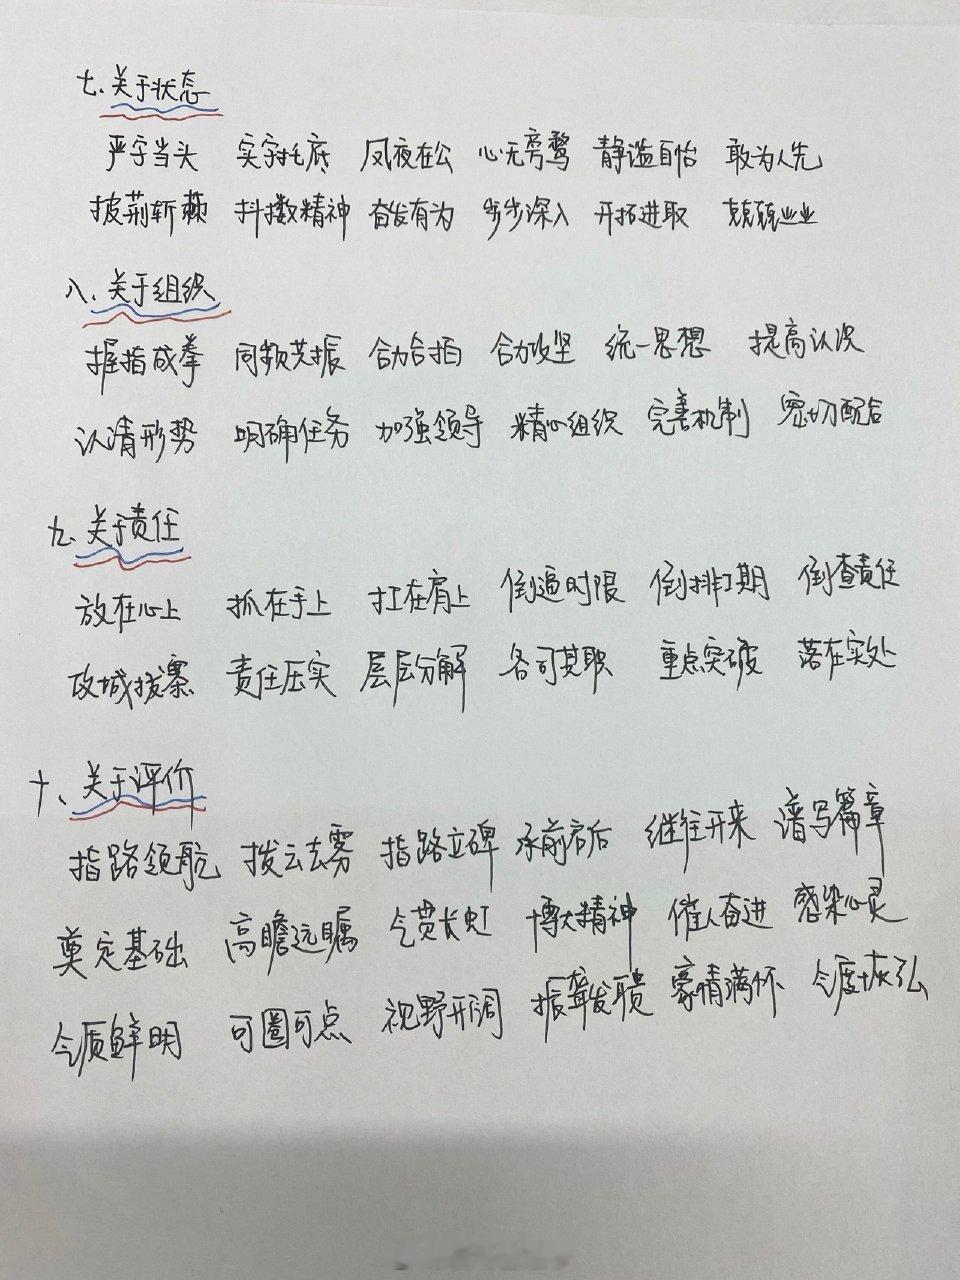 七、关于状态
严字当头 实字托底 夙夜在公 心无旁鹜 静谧自怡 敢为人先
披荆斩棘 抖擞精神 奋发有为 步步深入 开拓进取 兢兢业业
八、关于组织
握指成拳 同频共振 合力合拍 合力攻坚 统一思想 提高认次
认清形势 明确任务 加强领导 精心组织 完善机制 密切配合
九、关于责任
放在心上 抓在手上 扛在肩上 倒逼时限 倒排工期 倒查责任
攻城拔寨 责任压实 层层分解 各司其职 重点突破 落在实处
十、关于评价
指路领航 拨云去雾 指路立碑 承前启后 继往开来 谱写篇章
奠定基础 高瞻远瞩 气贯长虹 博大精神 催人奋进 感染心灵
气质鲜明 可圈可点 视野开阔 振聋发聩 豪情满怀 气度恢弘